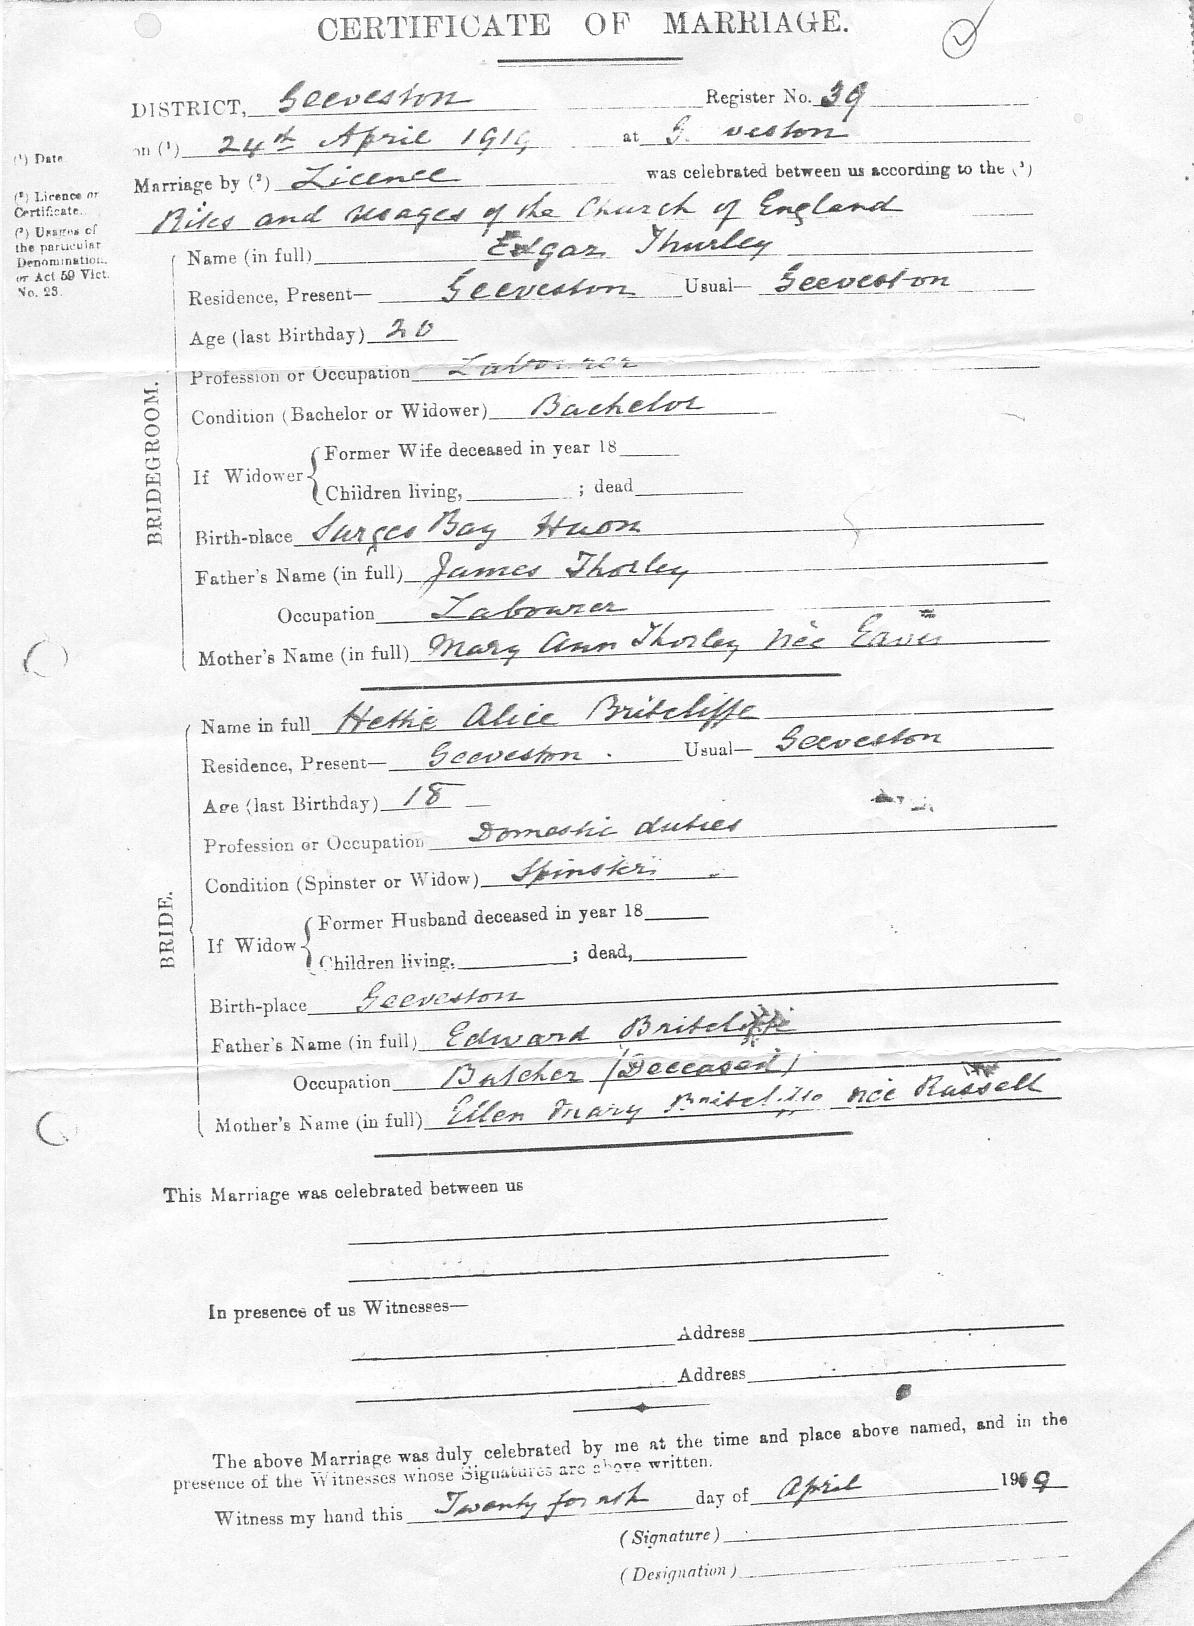 CERTIFICATE OF MARRIAGE.
DISTRICT, Geeveston Register No. 39
on (¹) 24th April 1919 at G veston
(¹) Date.
Marriage by (²) Licence was celebrated between us according to the (³)
(²) Licence or
Certificate.
Rites and usages of the Church of England
(³) Usages of
the particular
Denomination,
or Act 59 Vict.
No. 23.
BRIDEGROOM.
Name (in full) Edgar Thurley
Residence, Present— Geeveston Usual— Geeveston
Age (last Birthday) 20
Profession or Occupation Labourer
Condition (Bachelor or Widower) Bachelor
If Widower
Former Wife deceased in year 18
Children living, ; dead
Birth-place Surges Bay Huon
Father's Name (in full) James Thorley
Occupation Labourer
Mother's Name (in full) Mary Ann Thorley née
BRIDE.
Name in full Hettie Alice Britcliffe
Residence, Present— Geeveston . Usual— Geeveston
Age (last Birthday) 18
Profession or Occupation Domestic duties
Condition (Spinster or Widow) Spinster
If Widow
Former Husband deceased in year 18
Children living, ; dead,
Birth-place Geeveston
Father's Name (in full) Edward Britcliffe
Occupation Butcher (Deceased)
Mother's Name (in full) Ellen Mary Britcliffe née Russell
This Marriage was celebrated between us
In presence of us Witnesses—
Address
Address
The above Marriage was duly celebrated by me at the time and place above named, and in the
presence of the Witnesses whose Signatures are above written.
Witness my hand this Twenty forth day of April 1919
(Signature)
(Designation)